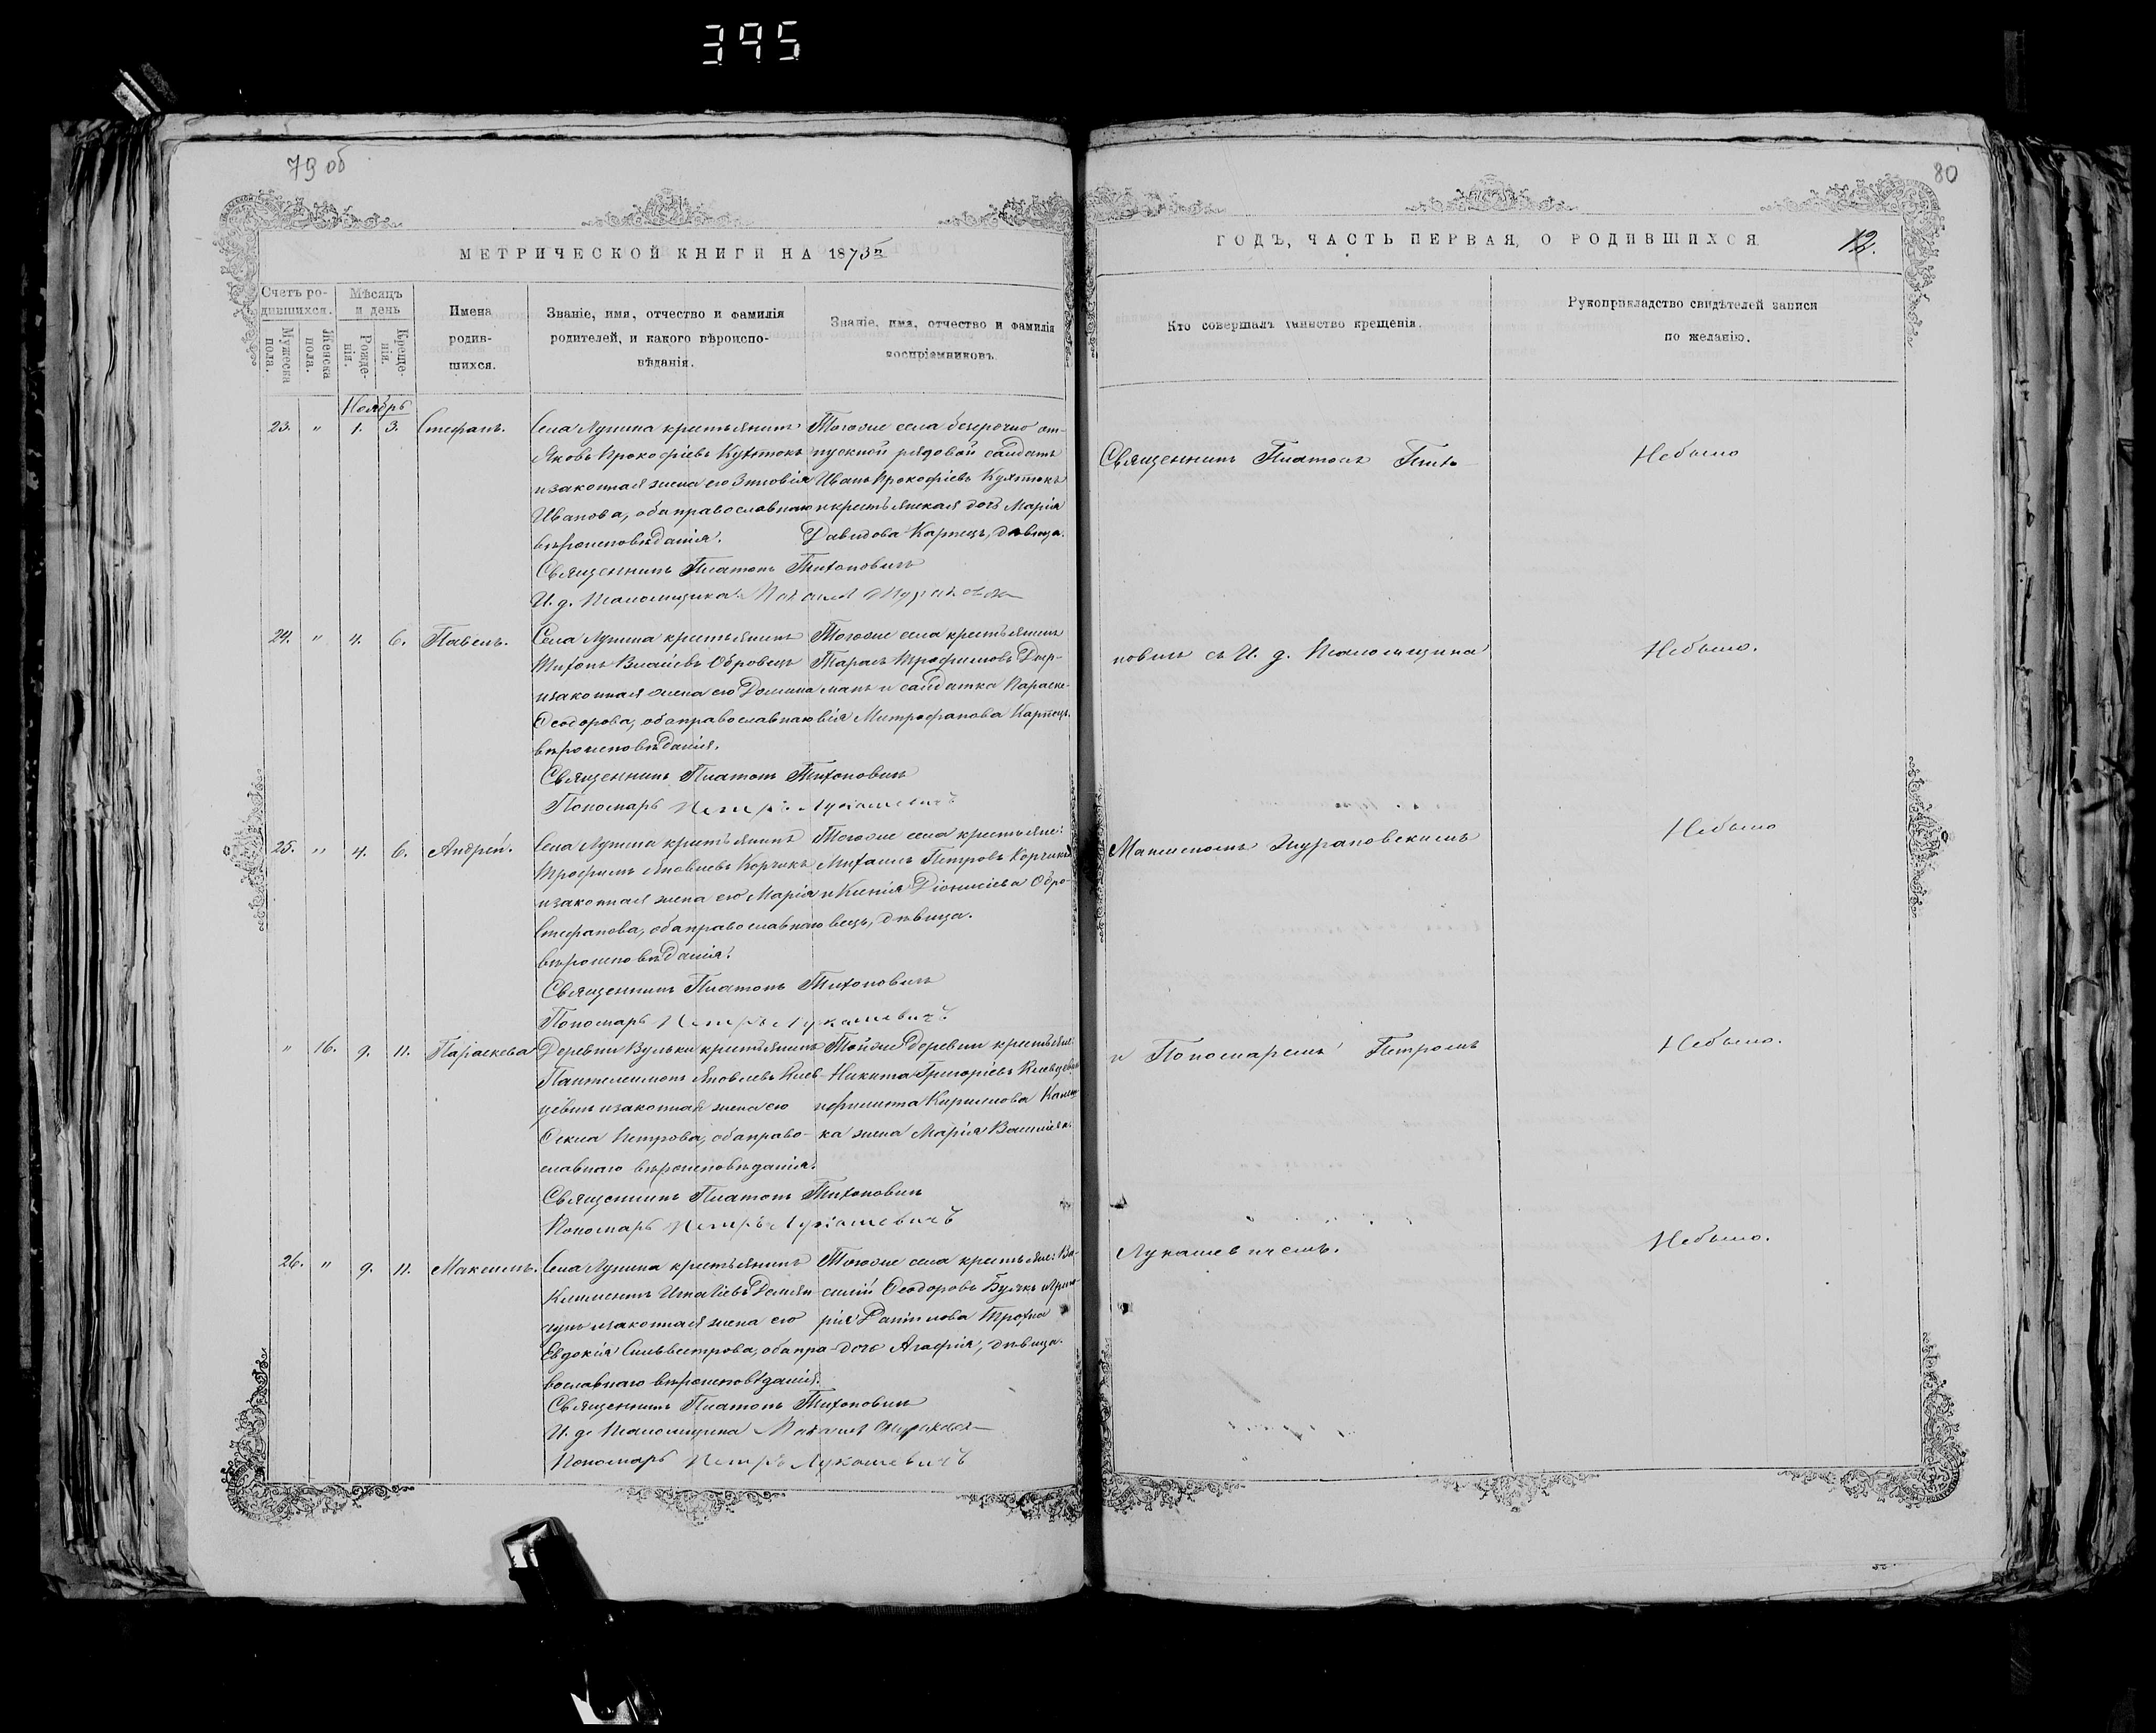 395
79 об
80
МЕТРИЧЕСКОЙ КНИГИ НА 1873й
ГОДЪ, ЧАСТЬ ПЕРВАЯ, О РОДИВШИХСЯ.
12.
Счетъ ро-
дившихся.
Мужеска
пола.
Женска
пола.
Мѣсяцъ
и день
Рожде-
нія.
Креще-
нія.
Имена
родив-
шихся.
Званіе, имя, отчество и фамилія
родителей, и какого вѣроиспо-
вѣданія.
Званіе, имя, отчество и фамилія
воспріемниковъ.
Кто совершалъ таинство крещенія.
Рукоприкладство свидѣтелей записи
по желанію.
Ноябрь
23. " 1. 3. Стефанъ.
Села Лунина крестьянинъ
Яковъ Прокофіевъ
и законная жена его Зиновія
Иванова, оба православнаго
вѣроисповѣданія.
Тогоже села безсрочно от-
пускной рядовой солдатъ
Иванъ Прокофіевъ
и крестьянская дочь Марія
Давидова Карпецъ, дѣвица.
Священникъ Платонъ Тихоновичъ
И. д. Псаломщика
Священникъ Платонъ Тихо-
Небыло
24. " 4. 6. Павелъ.
Села Лунина крестьянинъ
Тихонъ Власіевъ Обровецъ
и законная жена его Домина
Ѳеодорова, оба православнаго
вѣроисповѣданія.
Тогоже села крестьянинъ
Тарасъ Трофимовъ Дыр-
манъ и солдатка Параске-
вія Митрофанова Карпецъ.
Священникъ Платонъ Тихоновичъ
Пономарь Петръ Лукашевичъ
новичъ съ И. д. Псаломщика
Небыло.
25. " 4. 6. Андрей.
Села Лунина крестьянинъ
Трофимъ Яковлевъ Корчикъ
и законная жена его Марія
Стефанова, оба православнаго
вѣроисповѣданія.
Тогоже села крестьяне:
Михаилъ Петровъ Корчикъ
и Ксенія Діонисіева Обро-
вецъ, дѣвица.
Священникъ Платонъ Тихоновичъ
Пономарь Петръ Лукашевичъ
Небыло
" 16. 9. 11. Параскева
Деревни Вульки крестьянинъ
Пантелеимонъ Яковлевъ Клев-
и законная жена его
Петрова, оба право-
славнаго вѣроисповѣданія.
Тойже деревни крестьяне:
Никита Григоріевъ
Кирилова
жена Марія
Священникъ Платонъ Тихоновичъ
Пономарь Петръ Лукашевичъ
и Пономаремъ Петромъ
Небыло.
26. " 9. 11. Максимъ.
Села Лунина крестьянинъ
Климентъ Игнатіевъ Демян-
чукъ и законная жена его
Евдокія Сильвестрова, оба пра-
вославнаго вѣроисповѣданія.
Тогоже села крестьяне: Ва-
силій Ѳеодоровъ
дочь Агафія, дѣвица.
Священникъ Платонъ Тихоновичъ
И. д. Псаломщика
Пономарь Петръ Лукашевичъ
Лукашевичемъ.
Небыло.